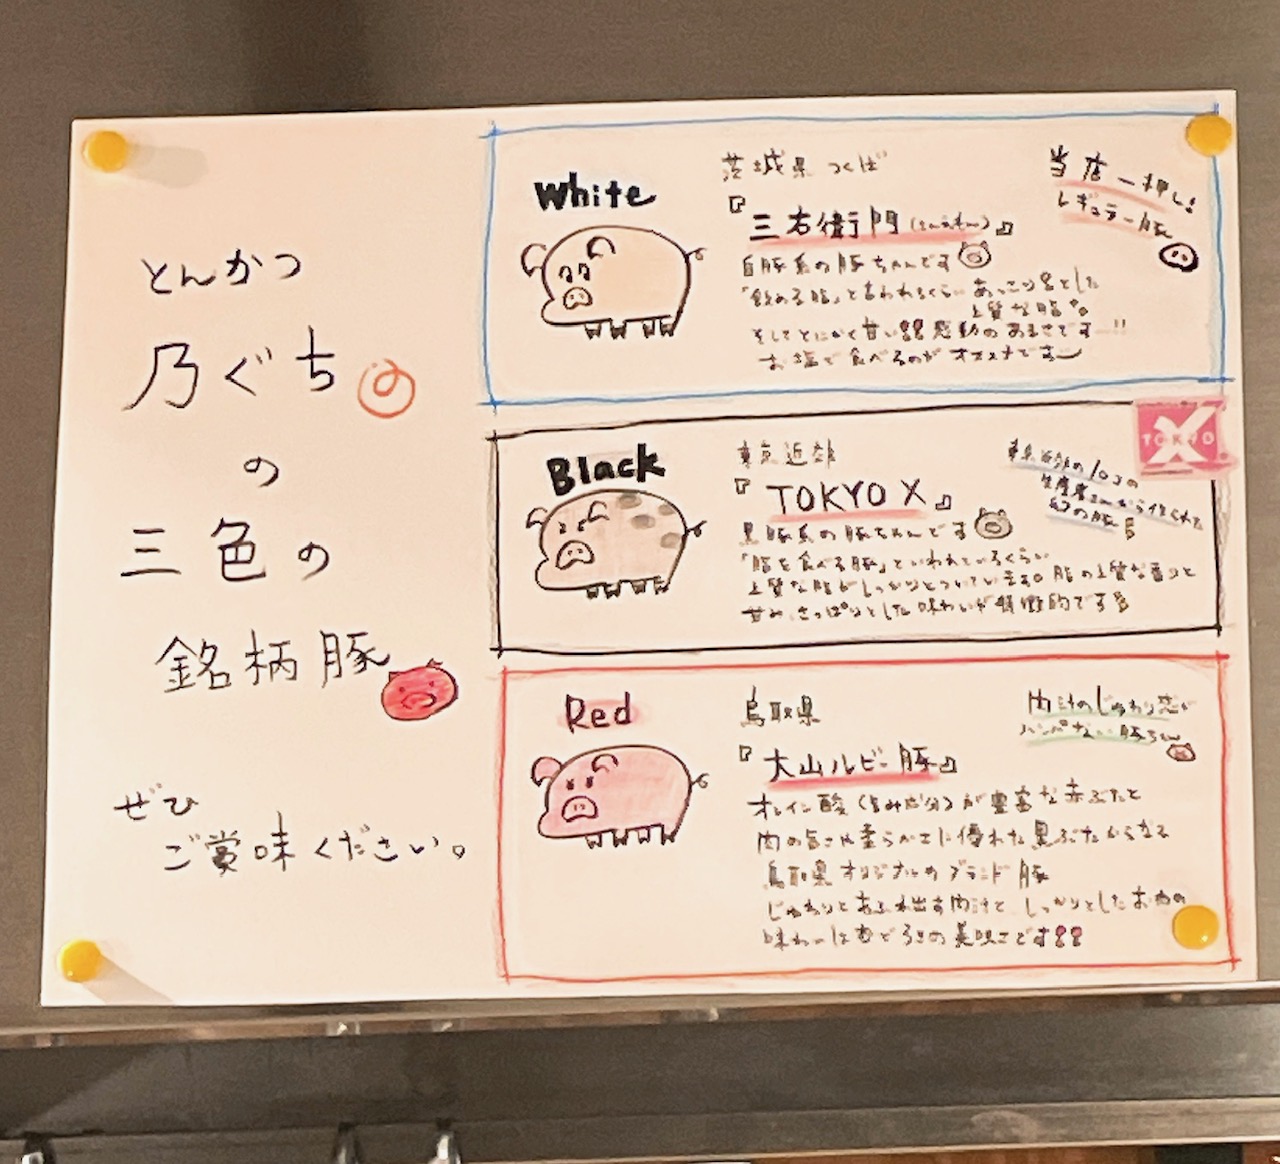 とんかつ
乃ぐち
の
の
三色の
銘柄豚
ぜひ
ご賞味ください。
White
茨城県 つくば
『三右衛門(さんえもん)』
当店一押し!
レギュラー豚
白豚系の豚ちゃんです
「飲める脂」と言われるくらい あっさりとした
上質な脂
そしてとにかく甘い 感動のあまさです!!
お塩で食べるのがオススメです
Black
東京近郊
『TOKYO X』
TOKYO X
東京近郊の10コの
生産者さんから作られた
幻の豚
黒豚系の豚ちゃんです
「脂を食べる豚」といわれているくらい
上質な脂がしっかりとついています。脂の上質な香りと
甘み、さっぱりとした味わいが特徴的です
Red
鳥取県
『大山ルビー豚』
肉汁のじゅわり感が
ハンパない豚ちゃん
オレイン酸(旨み成分)が豊富な赤ぶたと
肉の旨さや柔らかさに優れた黒ぶたからなる
鳥取県オリジナルのブランド豚
じゅわりとあふれ出す肉汁と しっかりとしたお肉の
味わいはおどろきの美味さです!!